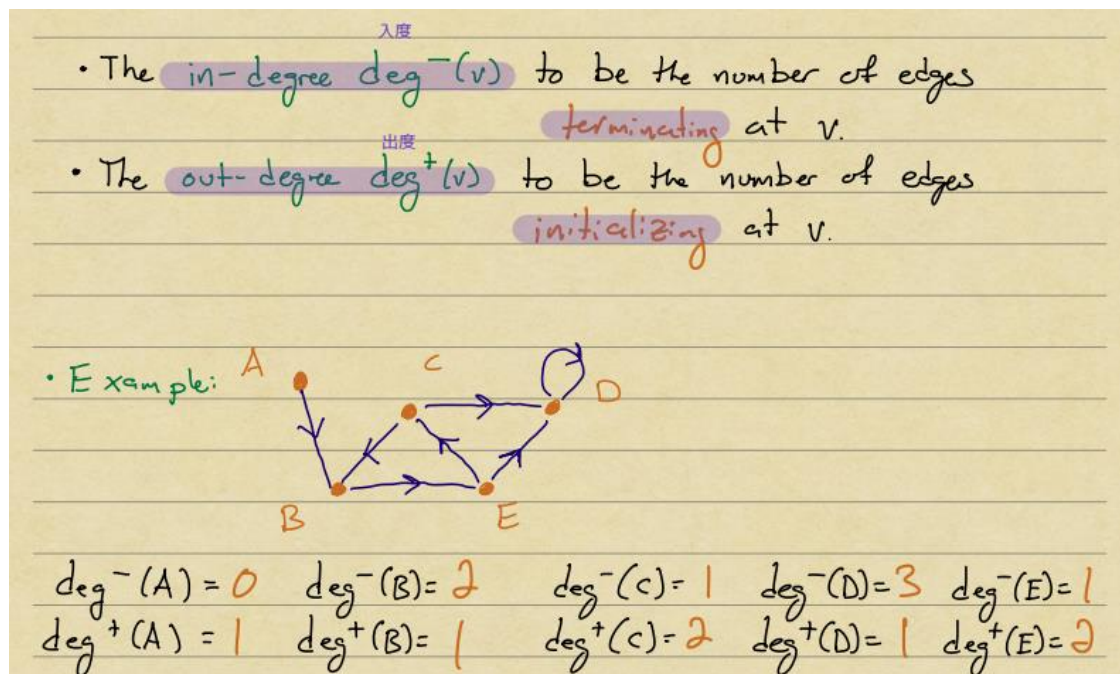 入度
• The in-degree deg⁻(v) to be the number of edges
terminating at v.
出度
• The out-degree deg⁺(v) to be the number of edges
initializing at v.
• Example:
A
C
D
B
E
deg⁻(A) = 0 deg⁻(B)= 2 deg⁻(C)= 1 deg⁻(D)= 3 deg⁻(E)= 1
deg⁺(A) = 1 deg⁺(B)= 1 deg⁺(C)= 2 deg⁺(D)= 1 deg⁺(E)= 2